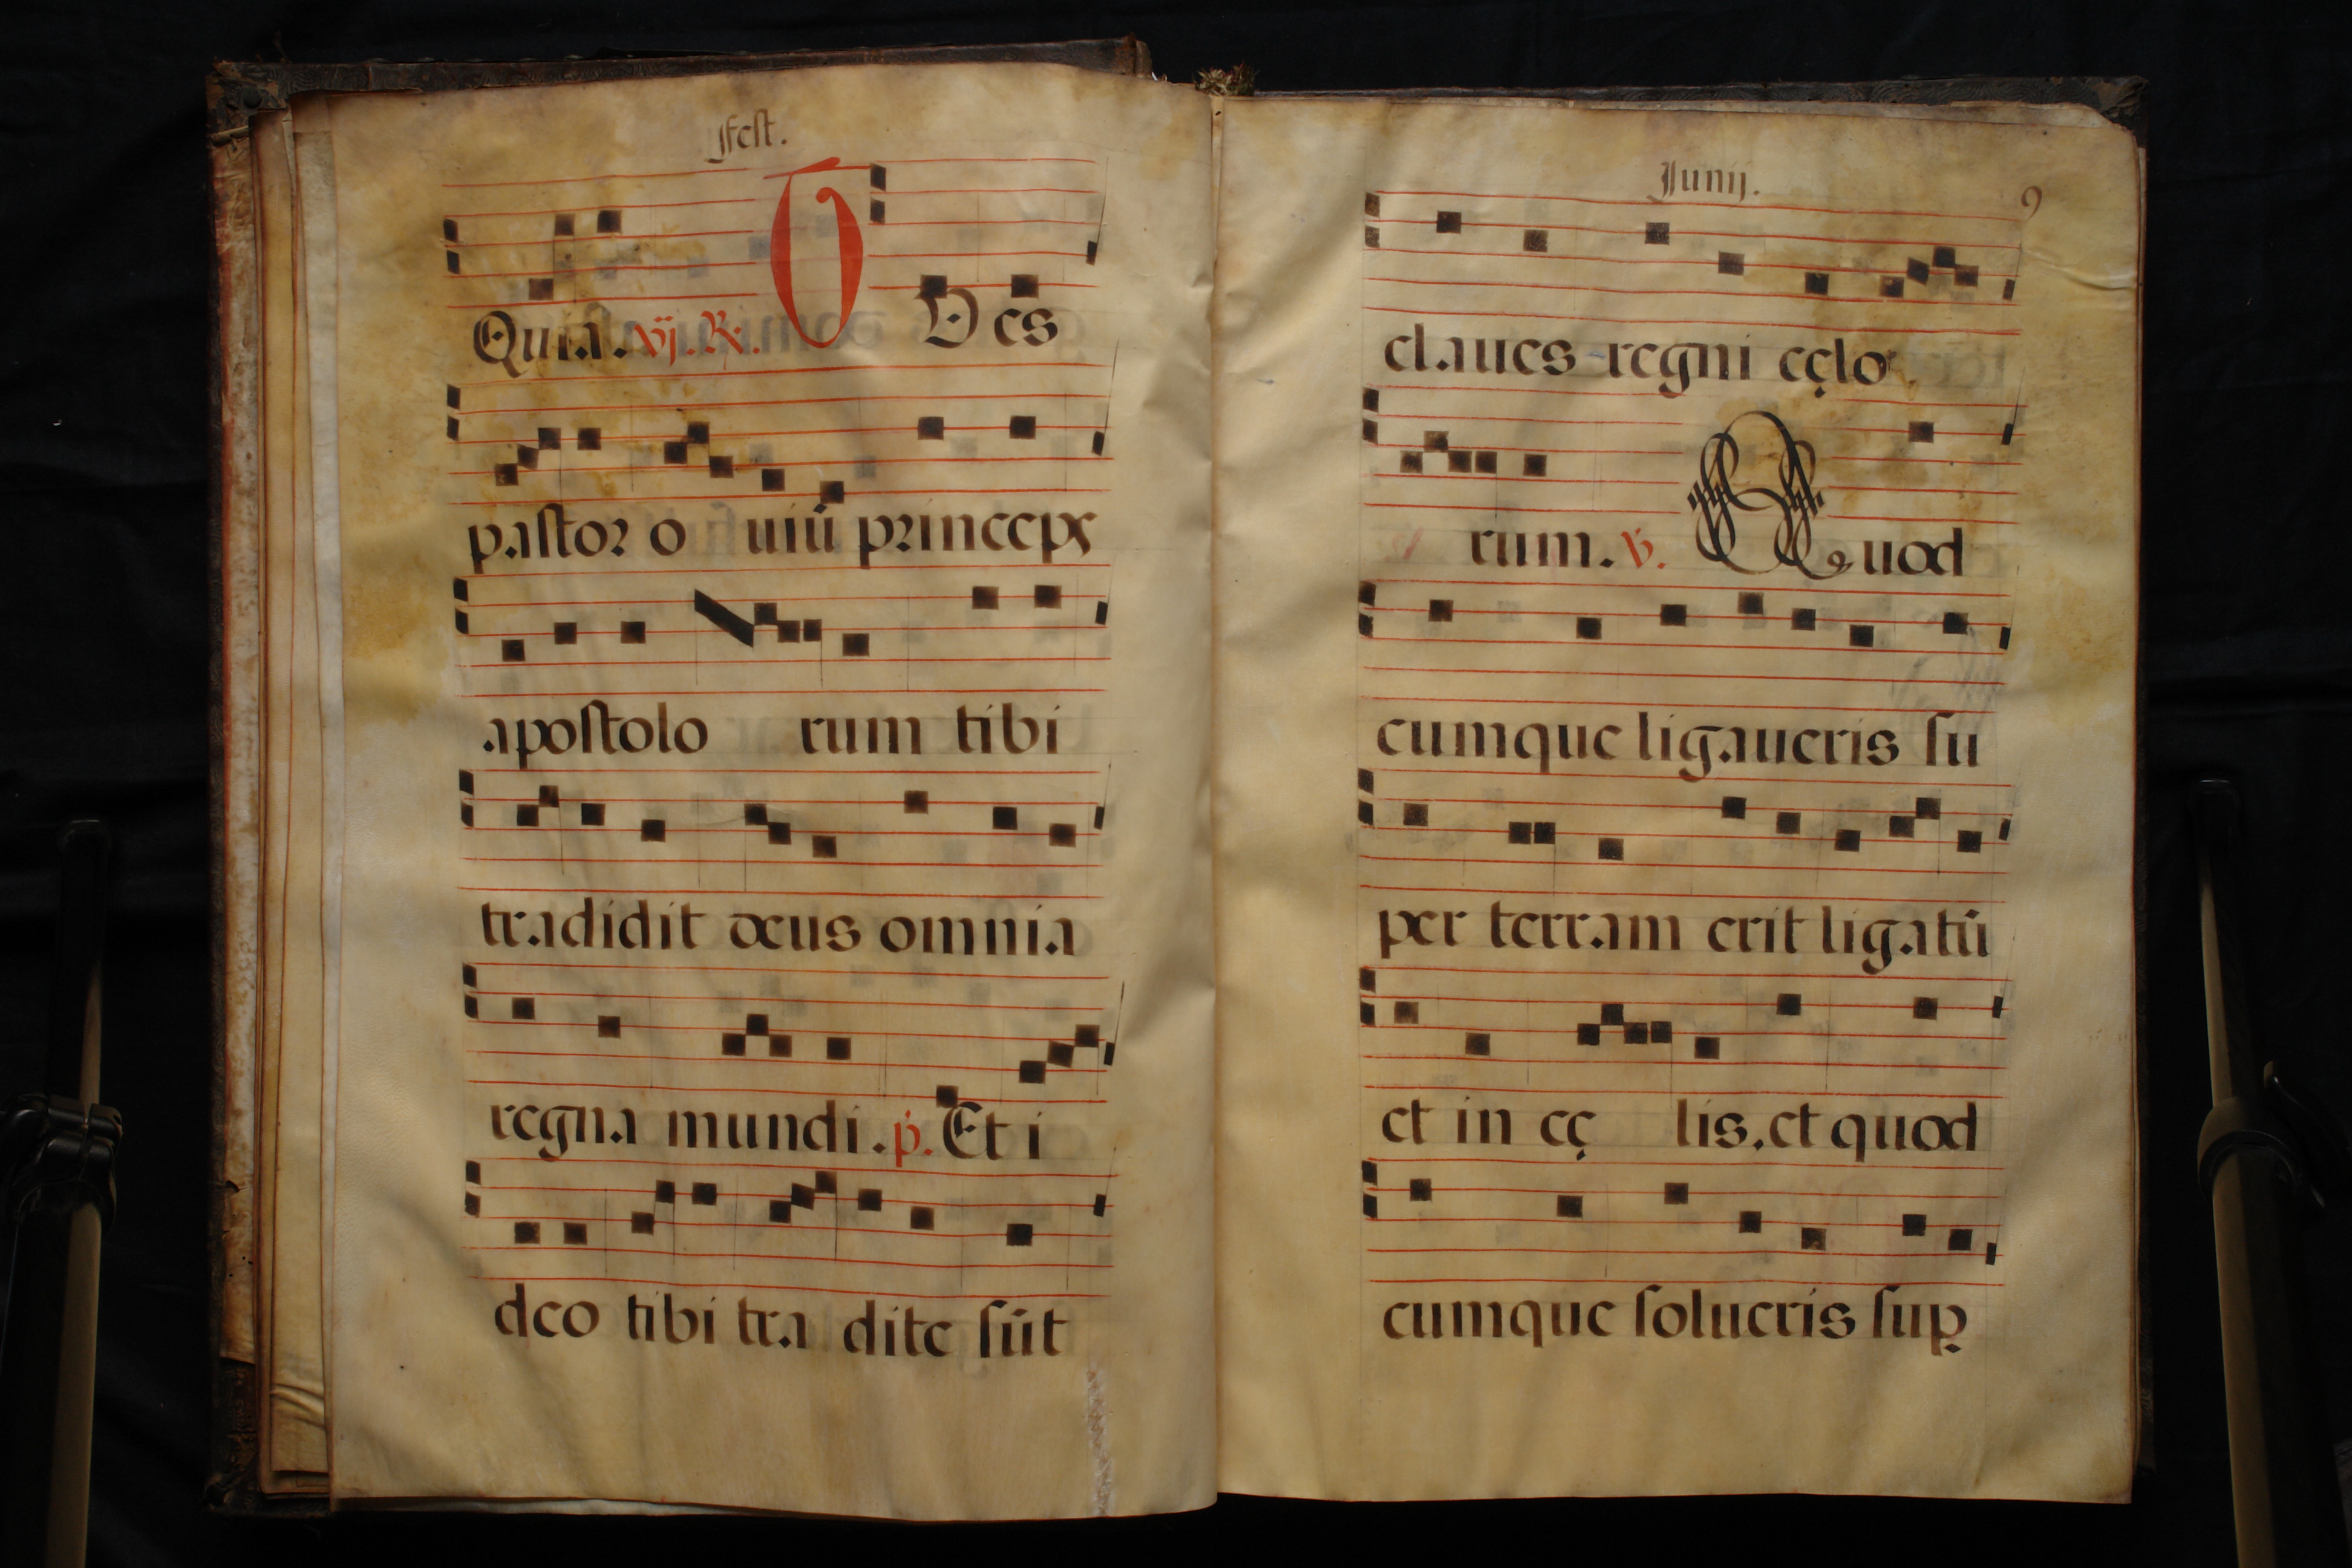 Fest.
Quia. vj. R. TU es
pastor ouiū princeps
apostolorum tibi
tradidit deus omnia
regna mundi. p. Et i
deo tibi tradite sūt
Junij. 9
claues regni cęlo
rum. v. Quod
cumque ligaueris su
per terram erit ligatū
et in cęlis, et quod
cumque solueris sup